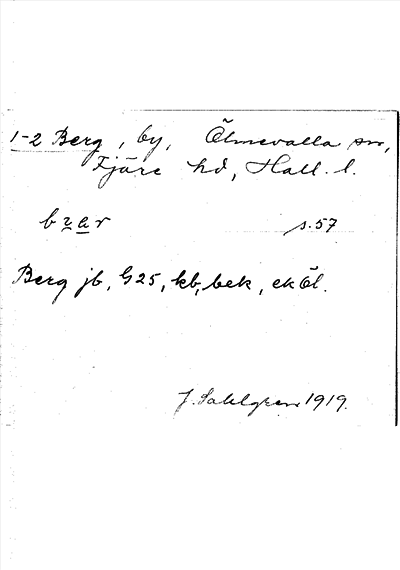 1-2 Berg, by, Ölmevalla sn,
Fjäre hd, Hall. l.
s.57
Berg jb, G25, kb, bek, ek Öl.
J. Sahlgren 1919.